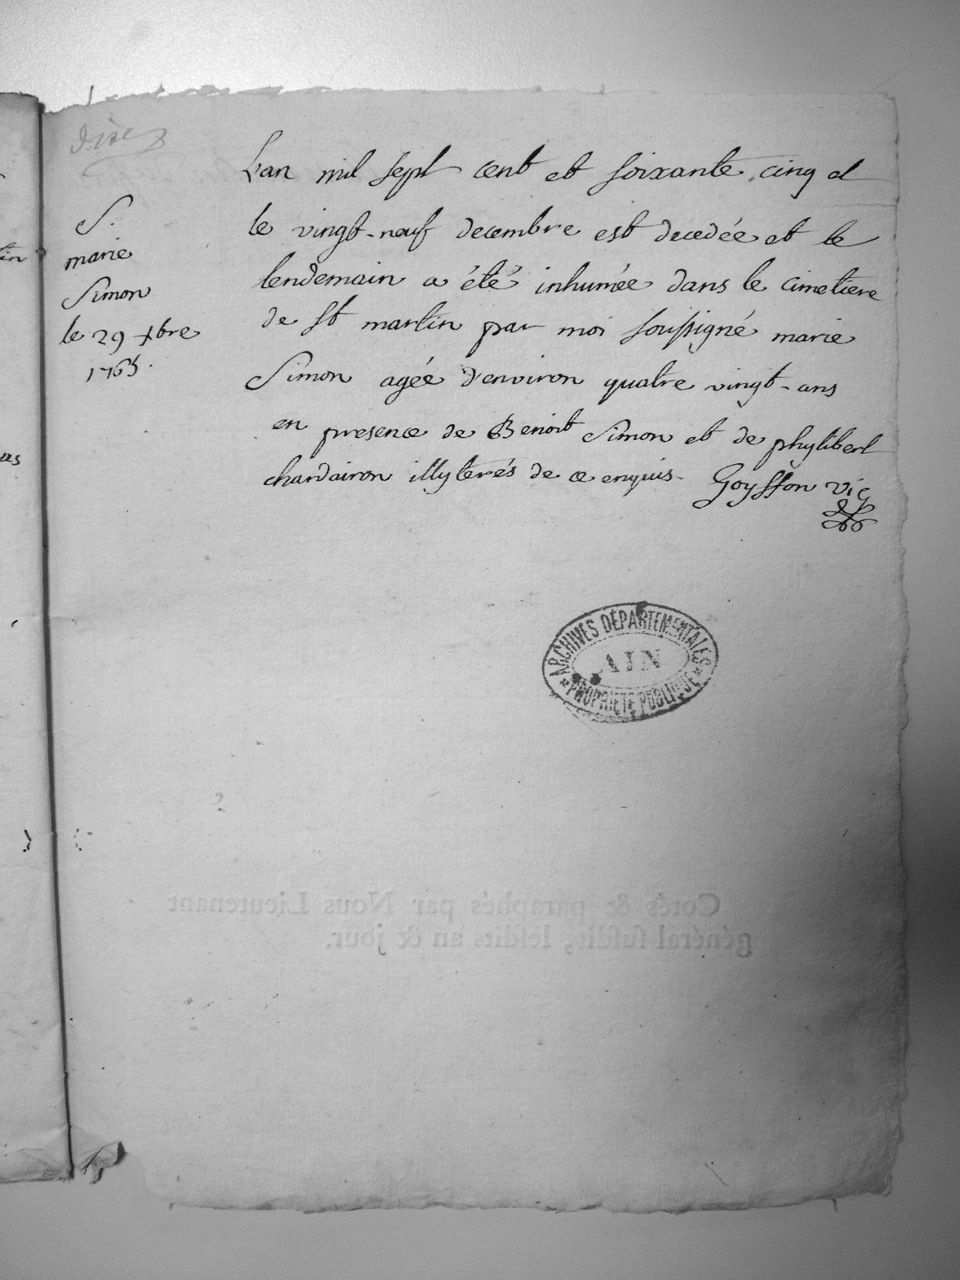 dixe
S.
marie
Simon
le 29 xbre
1765.
L'an mil sept cent et soixante cinq et
le vingt-neuf decembre est decedée et le
lendemain a été inhumée dans le cimetiere
de st martin par moi soussigné marie
Simon agée d'environ quatre vingt-ans
en presence de Benoit Simon et de phylibert
chardairon illyterés de ce enquis. Goyffon vic
ARCHIVES DÉPARTEMENTALES
AIN
PROPRIÉTÉ PUBLIQUE
Cotés & paraphés par Nous Lieutenant
général susdit, lesdits an & jour.